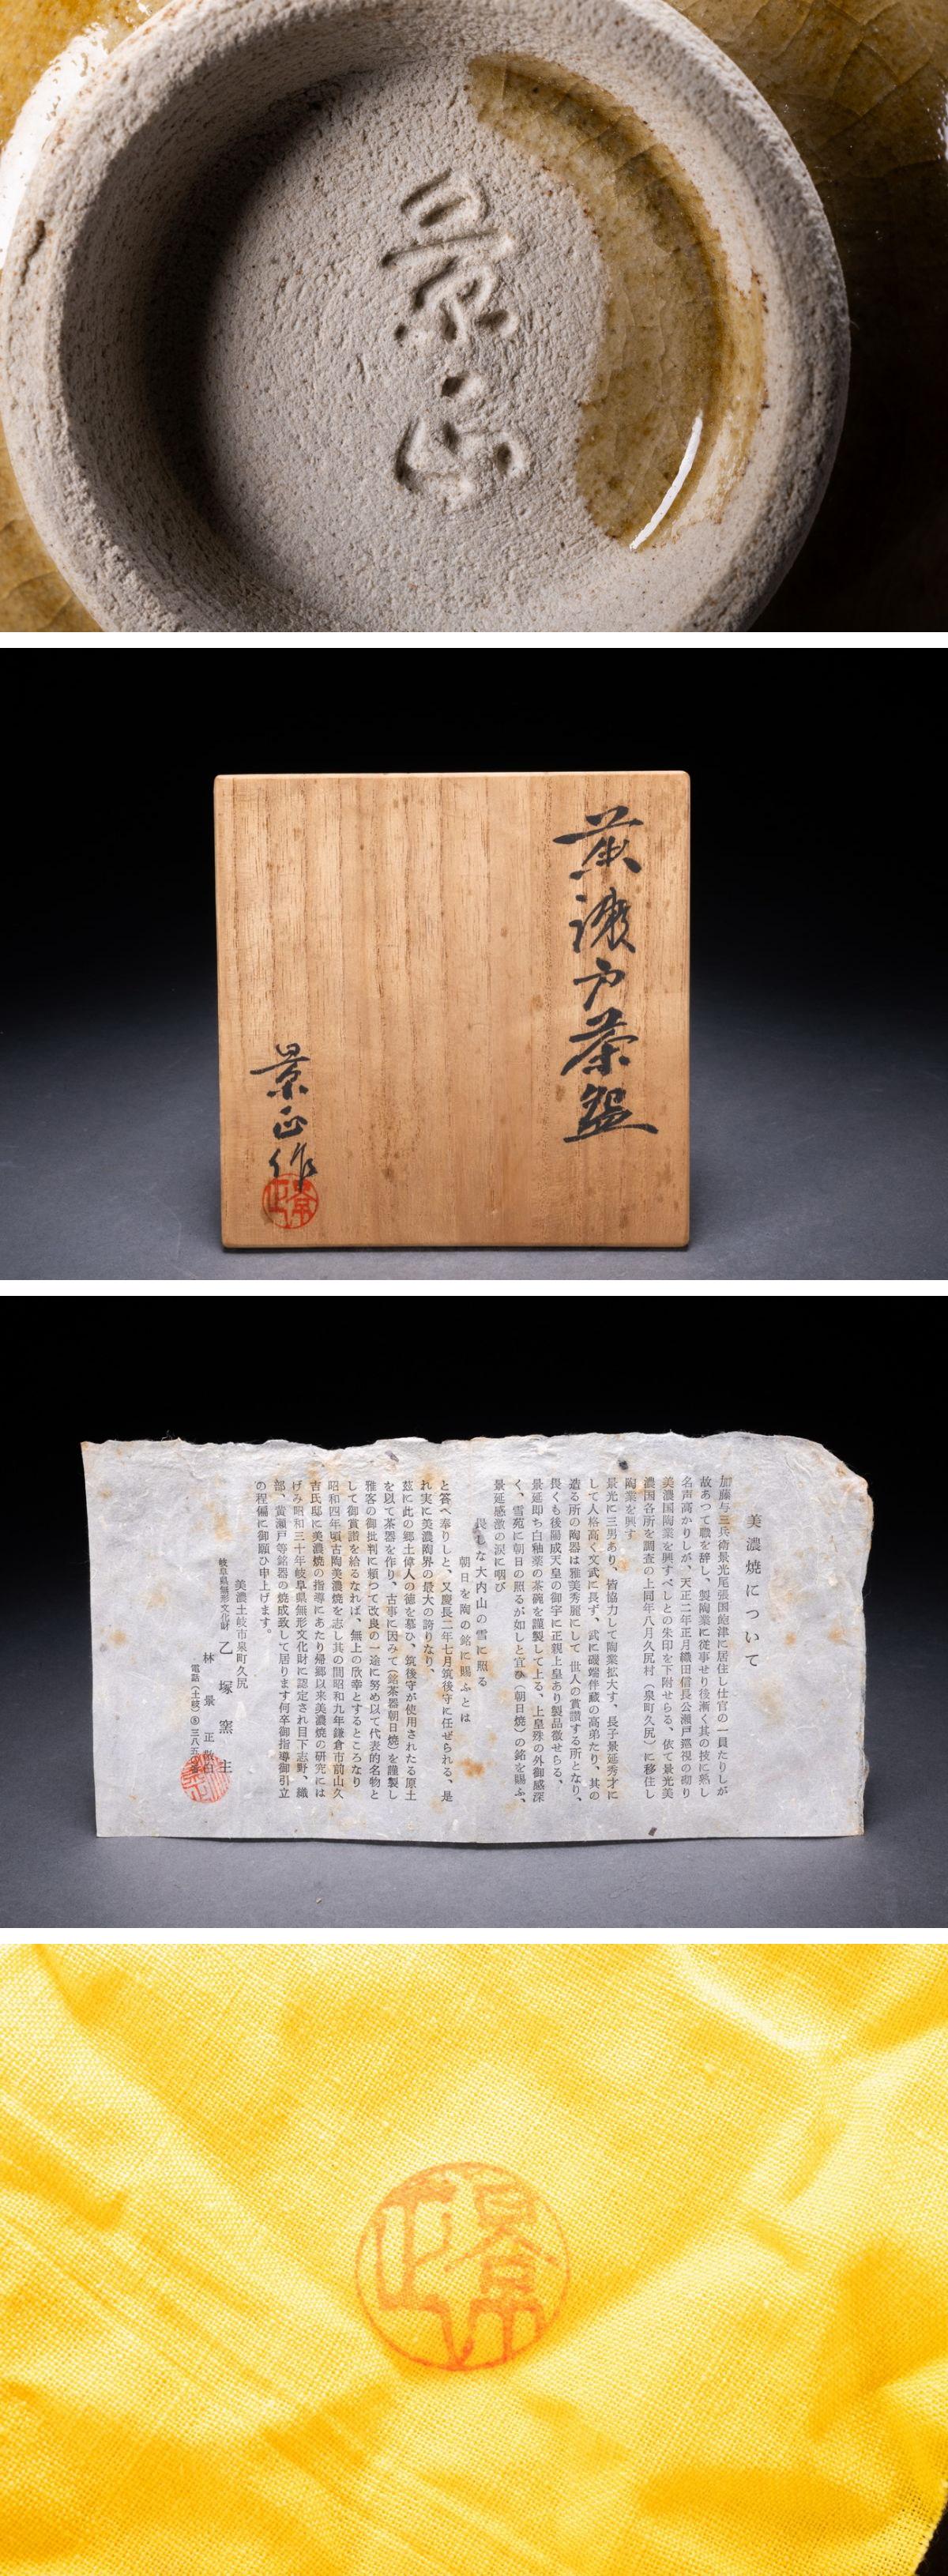 景正
黄瀬戸茶盌
景正作
景正
美濃焼について
加藤与三兵衛景光尾張国飽津に居住し仕官の一員たりしが
故あつて職を辞し、製陶業に従事せり後漸く其の技に熟し
名声高かりしが、天正二年正月織田信長公瀬戸巡視の砌り
美濃国陶業を興すべしとの朱印を下附せらる、依て景光美
濃国各所を調査の上同年八月久尻村(泉町久尻)に移住し
陶業を興す
景光に三男あり、皆協力して陶業拡大す、長子景延秀才に
して人格高く文武に長ず、武に磯端伴蔵の高弟たり、其の
造る所の陶器は雅美秀麗にして世人の賞讃する所となり、
畏くも後陽成天皇の御宇に正親上皇あり製品徴せらる、
景延即ち白釉薬の茶碗を謹製して上る、上皇殊の外御感深
く、雪苑に朝日の照るが如しと宜ひ(朝日焼)の銘を賜ふ、
景延感激の涙に咽び
畏しな大内山の雪に照る
朝日を陶の銘に賜ふとは
と答へ奉りしと、又慶長二年七月筑後守に任ぜられる、是
れ実に美濃陶界の最大の誇りなり、
茲に此の郷土偉人の徳を慕ひ、筑後守が使用されたる原土
を以て茶器を作り、古事に因みて(銘茶器朝日焼)を謹製し
雅客の御批判に頼つて改良の一途に努め以て代表的名物と
して御賞讃を給るなれば、無上の欣幸とするところなり
昭和四年頃古陶美濃焼を志し其の間昭和九年鎌倉市前山久
吉氏邸に美濃焼の指導にあたり帰郷以来美濃焼の研究には
げみ昭和三十年岐阜県無形文化財に認定され目下志野、織
部、黄瀬戸等銘器の焼成致して居ります何卒御指導御引立
の程偏に御願ひ申上げます。
美濃土岐市泉町久尻
岐阜県無形文化財 乙塚窯主
林景正敬白
電話(土岐)⑤三八五
景正